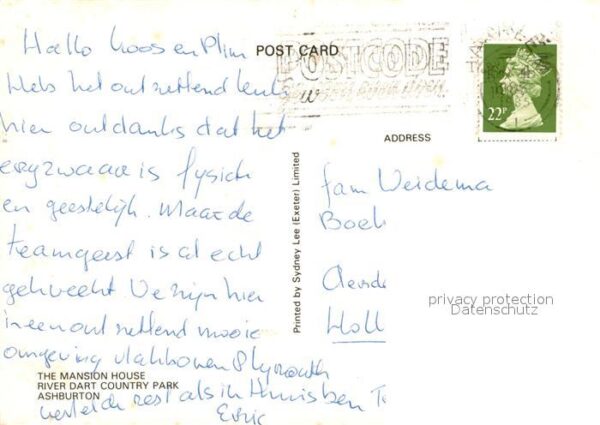 Hallo Koos en Plim
Heb het ontzettend leuk
hier ondanks dat het
erg zwaar is fysich
en geestelijk. Maar de
teamgeest is al echt
gekweekt We zijn hier
in een ontzettend mooie
omgeving vlak boven Plymouth
vertel de rest als ik thuis ben
Eric
POST CARD
POSTCODE
22P
ADDRESS
fam Weidema
Boek
Holl
Printed by Sydney Lee (Exeter) Limited
privacy protection
Datenschutz
THE MANSION HOUSE
RIVER DART COUNTRY PARK
ASHBURTON